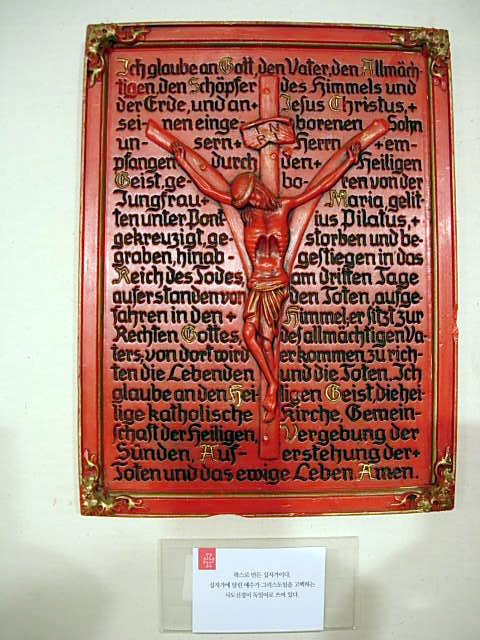 Ich glaube an Gott, den Vater, den Allmäch-
tigen, den Schöpfer des Himmels und
der Erde, und an + Jesus Christus, +
sei- nen einge- borenen Sohn
INRI
un- sern + Herrn + em-
pfangen durch den + Heiligen
Geist, ge- bo- ren von der
Jungfrau + Maria, gelit-
ten unter Pont ius Pilatus, +
gekreuzigt, ge- storben und be-
graben, hinab- gestiegen in das
Reich des Todes, am dritten Tage
auferstanden von den Toten, aufge-
fahren in den + Himmel; er sitzt zur
Rechten Gottes, des allmächtigen Va-
ters; von dort wird er kommen zu rich-
ten die Lebenden und die Toten. Ich
glaube an den Hei- ligen Geist, die hei-
lige katholische Kirche, Gemein-
schaft der Heiligen, Vergebung der
Sünden, Auf- erstehung der +
Toten und das ewige Leben Amen.
왁스로 만든 십자가이다.
십자가에 달린 예수가 그리스도임을 고백하는
사도신경이 독일어로 쓰여 있다.